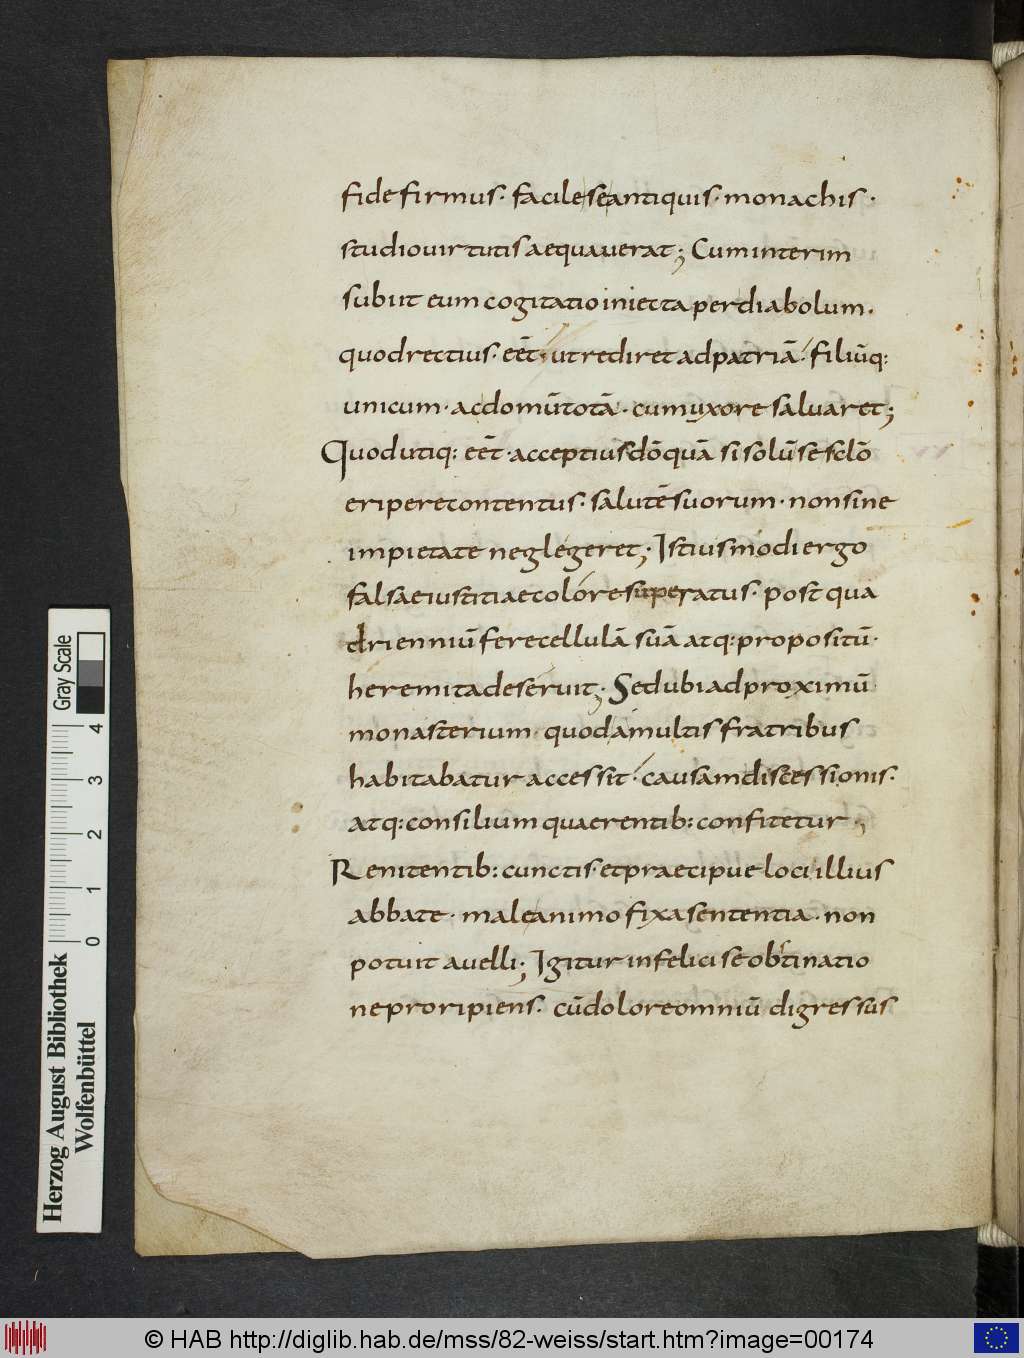 fide firmus· facile se antiquis· monachis·
studio virtutis aequaverat; Cum interim
subiit eum cogitatio iniecta per diabolum·
quod rectius· eēt· ut rediret ad patriā· filiūq:
unicum· ac domū totā· cum uxore salvaret;
Quod utiq: eēt· acceptius dō quā si solū se sclō
eripere contentus· salutē suorum· non sine
impietate neglegeret; Istius modi ergo
falsae iustitiae colore superatus· post qua
drienniū fere cellulā suā atq: propositū·
heremita deseruit; Sed ubi ad proximū
monasterium quod a multis fratribus
habitabatur accessit· causam discessionis·
atq: consilium quaerentib: confitetur;
Renitentib: cunctis· et praecipue loci illius
abbate· male animo fixa sententia· non
potuit avelli; Igitur infelici se obstinatio
ne proripiens· cū dolore omniū digressus
Herzog August Bibliothek
Wolfenbüttel
0 1 2 3 4
Gray Scale
© HAB http://diglib.hab.de/mss/82-weiss/start.htm?image=00174